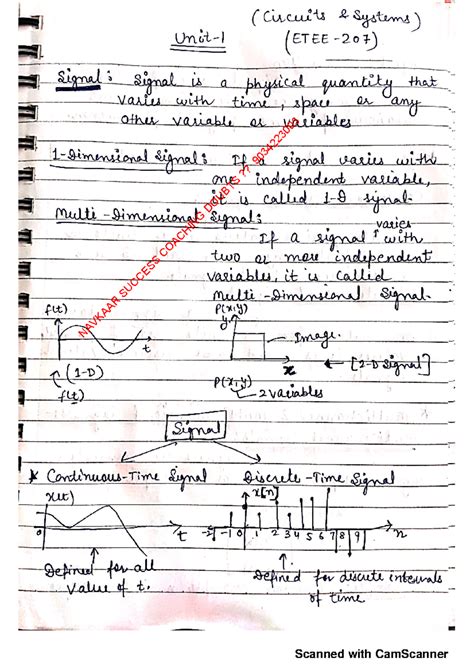 (Circuits & Systems)
Unit-1
(ETEE-207)
Signal: Signal is a physical quantity that
varies with time, space or any
other variable or variables
1-Dimensional Signal: If a signal varies with
one independent variable,
it is called 1-D signal.
Multi-Dimensional Signal:
varies
If a signal with
two or more independent
variables, it is called
Multi-Dimensional Signal.
NAVKAAR SUCCESS COACHING DOUBTS ?? 9034223000
f(t)
t
(1-D)
f(t)
P(x,y)
y
Image.
x
[2-D Signal]
P(x,y)
2 variables
Signal
* Continuous-Time Signal
Discrete-Time Signal
x(t)
0
t
x[n]
-2 -1 0 1 2 3 4 5 6 7 8 9
n
Defined for all
Value of t.
Defined for discrete intervals
of time
Scanned with CamScanner